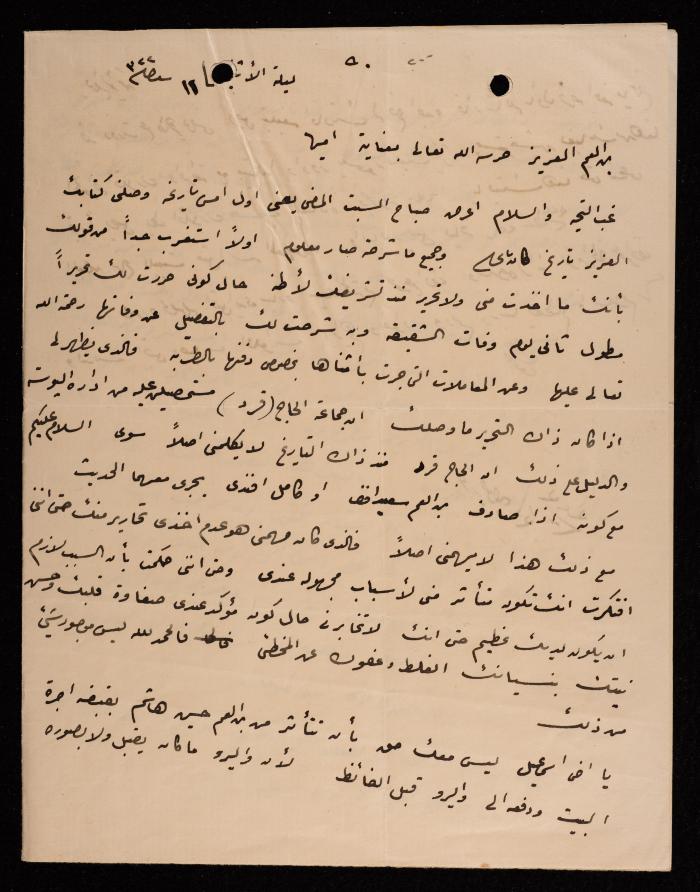 ٥٠
ليلة الأثنين ١٢ سنة ٣٢٢
بن العم العزيز حرسه الله تعالى بعناية امين
غب التحيه والسلام اعرض صباح السبت الماضي يعني اول امس تاريخه وصلني كتابك
العزيز تاريخ وجميع ما شرحته صار معلوم اولاً استغرب جداً من قولك
بأنك ما اخذت مني ولا تحرير منذ تشريفك لأطنه حال كوني حررت لك تحريراً
مطول ثاني يوم وفات الشقيقه وبه شرحت لك بالتفصيل عن وفاتها رحمة الله
تعالى عليها وعن المعاملات التي جرت بأثناها بخصوص دفنها بالطربه فالذي يظهر لي
اذا كان ذاك التحرير ما وصلك ان جماعة الحاج (قره) مستحصلين عليه من ادارة البوسته
والدليل على ذلك ان الحاج قره منذ ذاك التاريخ لا يكلمني اصلاً سوى السلام عليكم
مع كونه اذا صادف بن العم سعيد افندي او كامل افندي يجري معهما الحديث
مع ذلك هذا لا يهمني اصلاً فالذي كان مهمني هو عدم اخذي تحارير منك حتى انني
افتكرت انك تكون متأثر مني لأسباب مجهوله عندي وحتى انني حكمت بأن السبب لازم
ان يكون لديك عظيم حتى انك لا تخابرني حال كون مؤكد عندي صفاوة قلبك وحسن
نيتك بنسيانك الغلط وعفوك عن المخطئ فالحمد لله ليس موجود شيئ
من ذلك
يا اخي اسماعيل ليس معك حق بأن تتأثر من بن العم حسن هاشم بقبضه اجرة
البيت ودفعه الى واليرو قبل الفائظ لأن واليرو ما كان يقبل ولا بصوره